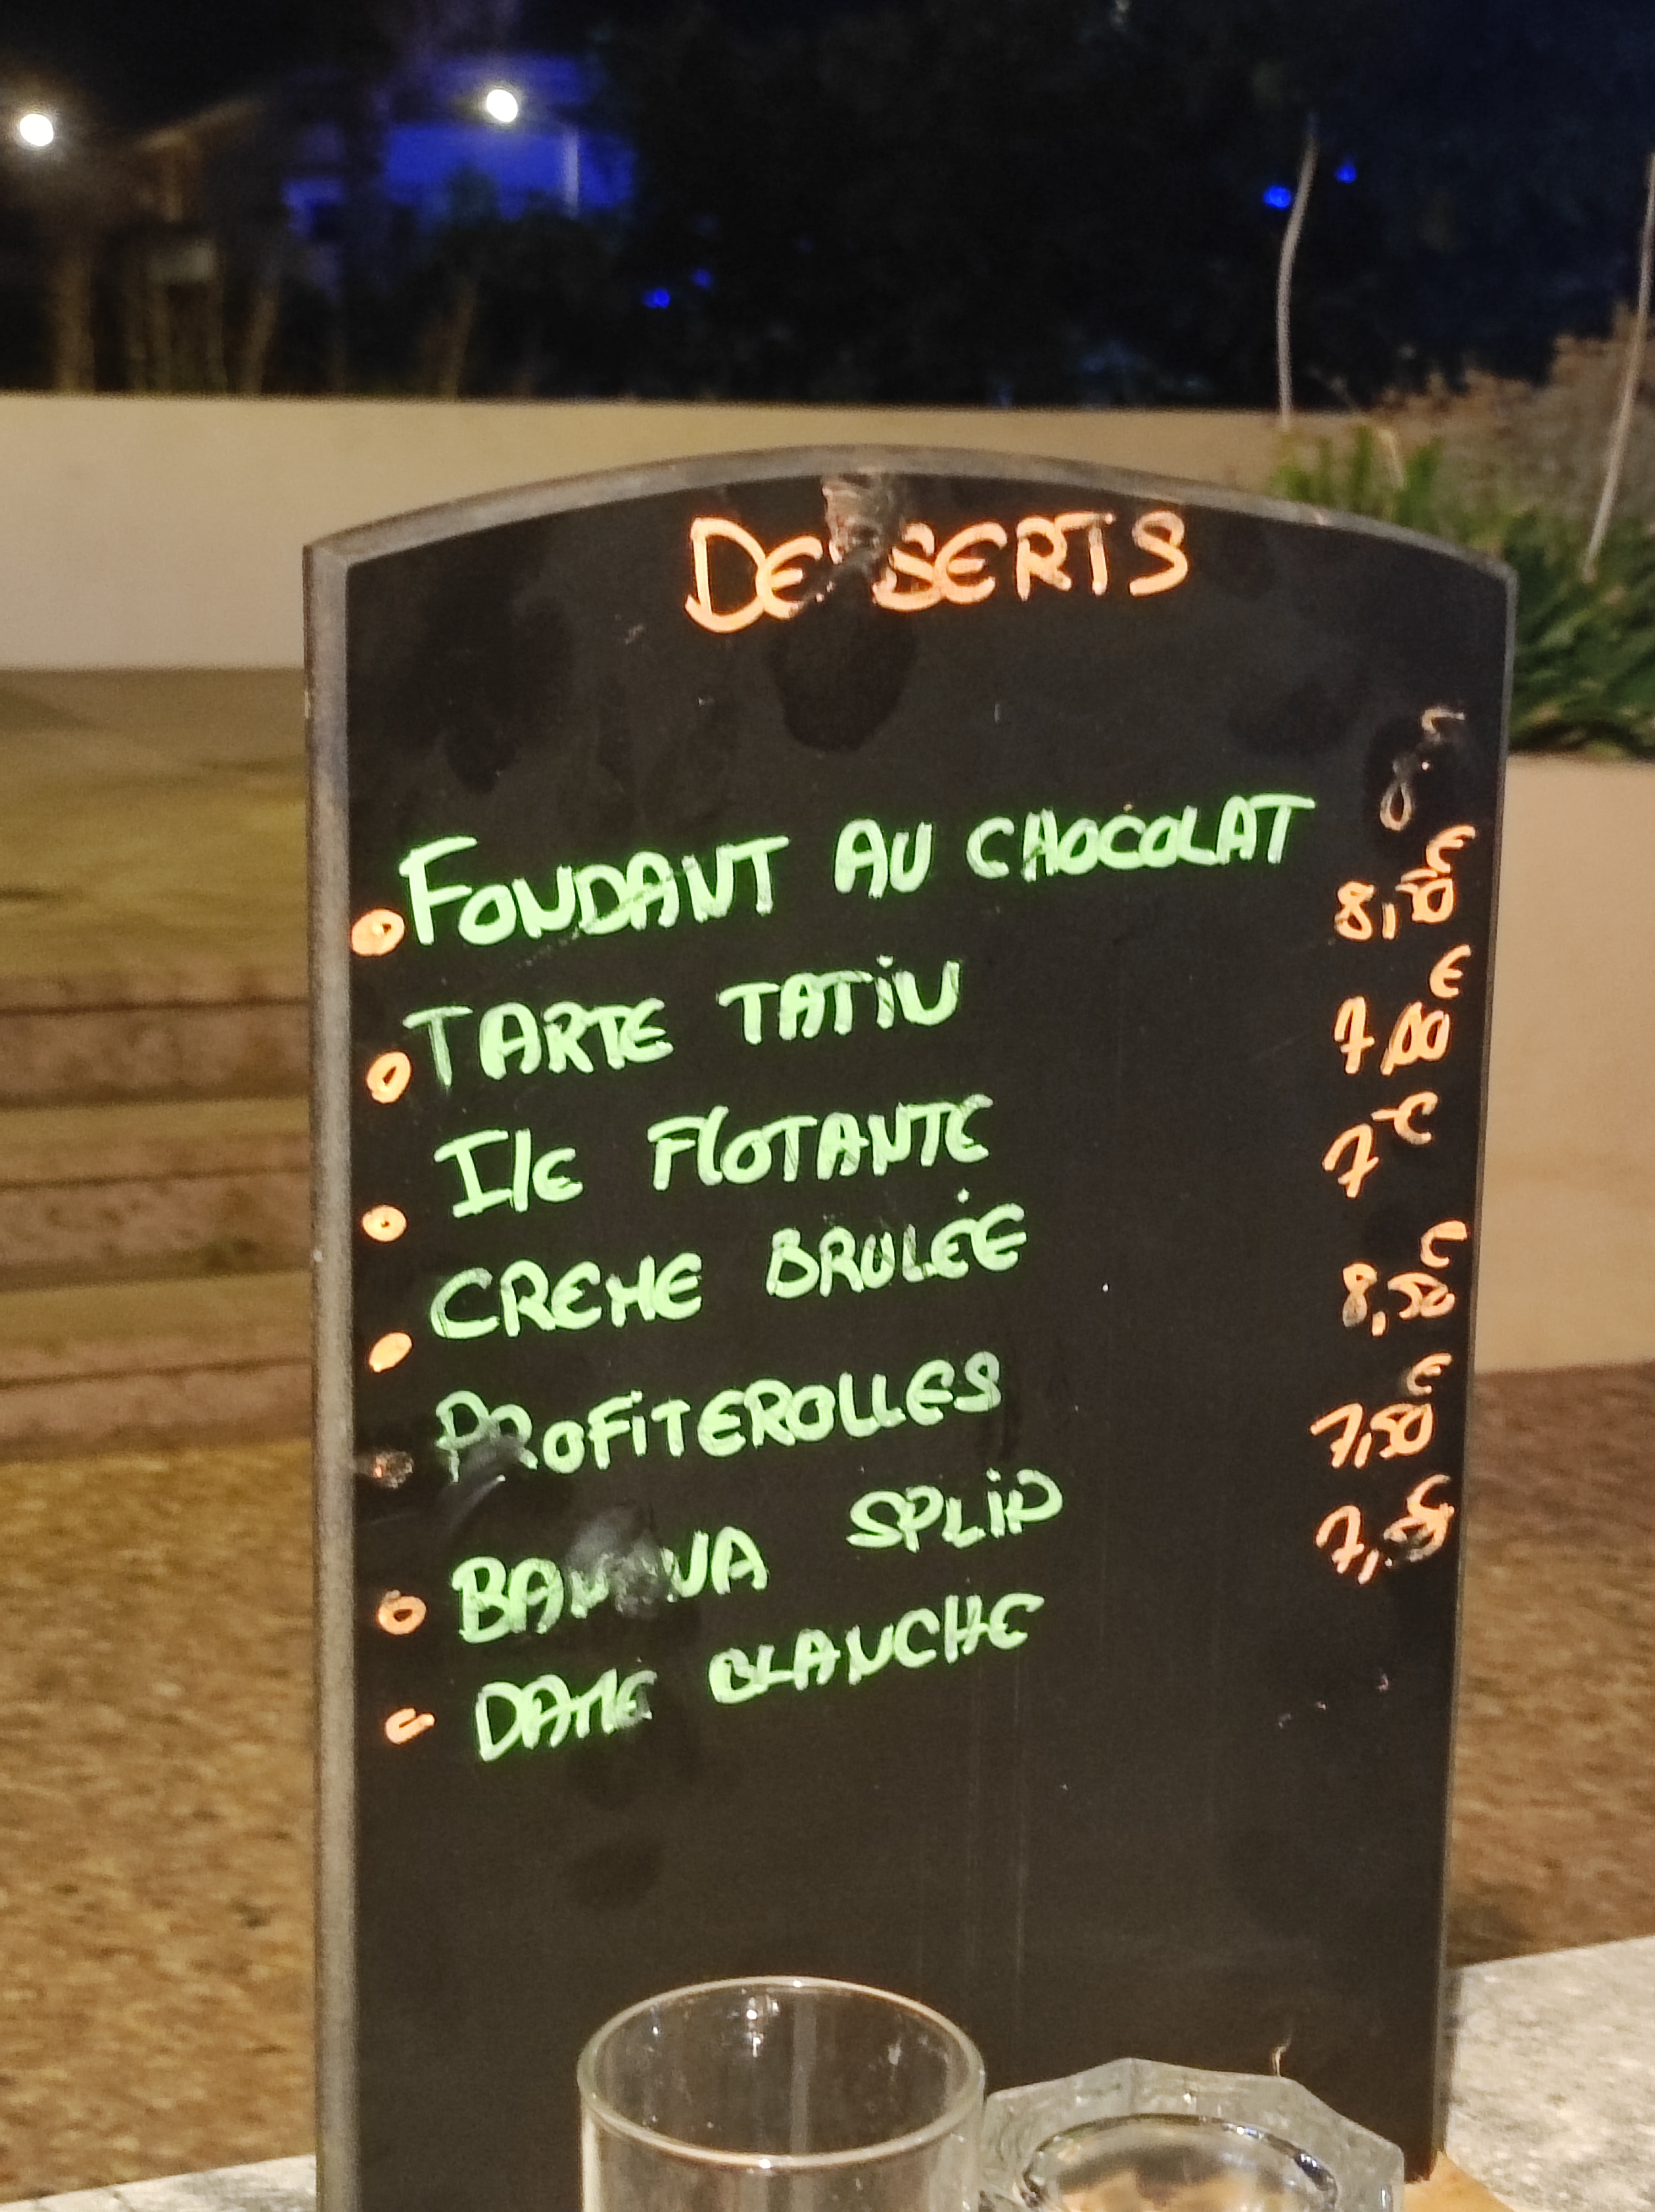 DESSERTS
FONDANT AU CHOCOLAT
TARTE TATiN
IlE FlOTANTE 7,00€
CREME BRULÉE 7€
PROFiTEROLLES 8,50€
BANANA SPLiD 7,50€
DAME BLANCHE